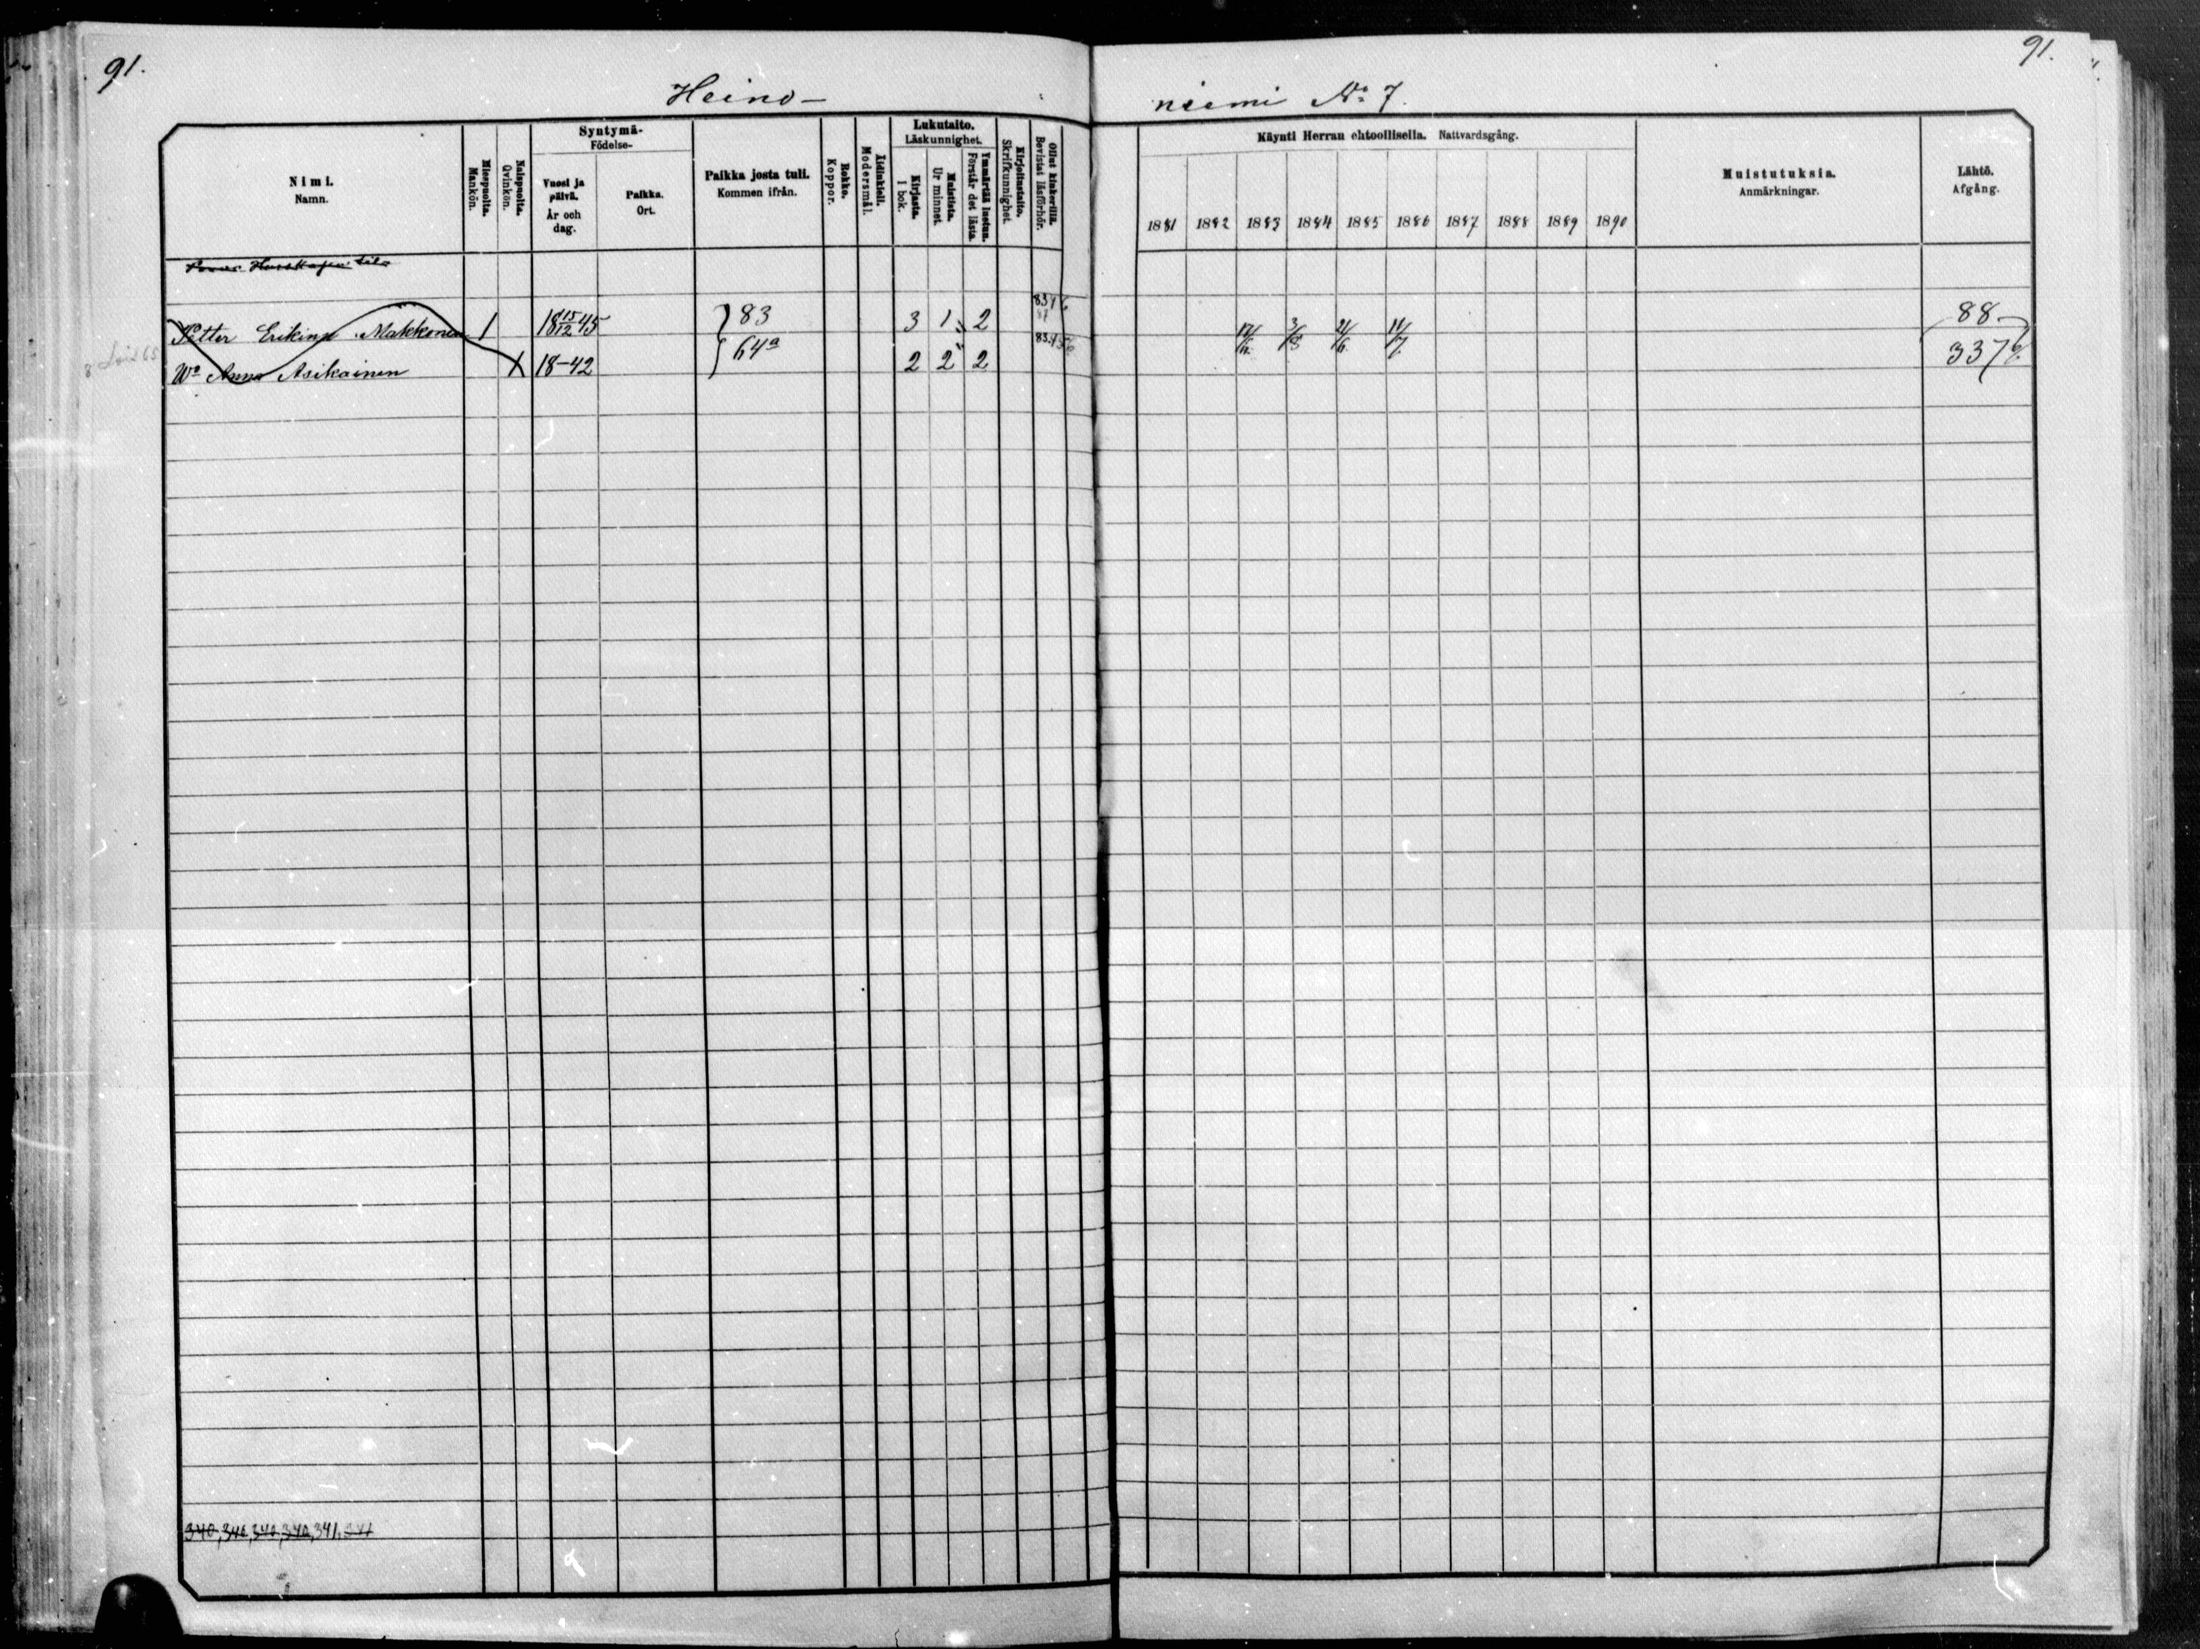 91.
91.
Heino-
niemi No 7.
Nimi.
Namn.
Miespuolta.
Mankön.
Naispuolta.
Qvinkön.
Syntymä-
Födelse-
Vuosi ja päivä.
År och dag.
Paikka.
Ort.
Paikka josta tuli.
Kommen ifrån.
Rokko.
Koppor.
Äidinkieli.
Modersmål.
Lukutaito.
Läskunnighet.
Kirjasta.
I bok.
Muistista.
Ur minnet.
Ymmärtää luetun.
Förstår det lästa.
Kirjoitustaito.
Skrifkunnighet.
Ollut kinkerillä.
Bevistat läsförhör.
Käynti Herran ehtoollisella. Nattvardsgång.
1881 1882 1883 1884 1885 1886 1887 1888 1889 1890
Muistutuksia.
Anmärkningar.
Lähtö.
Afgång.
Petter Erikinp Makkonen 1 18 15/12 45 83 3 1 2 3/8 21/6 11/7 88
Wo Anna Asikainen 18-42 64a 2 2 2 337
340, 340, 340, 340, 341, 341